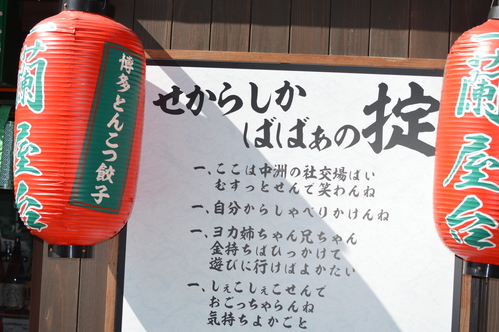 一蘭屋台
博多とんこつ餃子
せからしか
ばばぁの掟
一、ここは中洲の社交場ばい
むすっとせんで笑わんね
一、自分からしゃべりかけんね
一、ヨカ姉ちゃん兄ちゃん
金持ちばひっかけて
遊びに行けばよかたい
一、しぇこしぇこせんで
おごっちゃらんね
気持ちよかごと
一蘭屋台